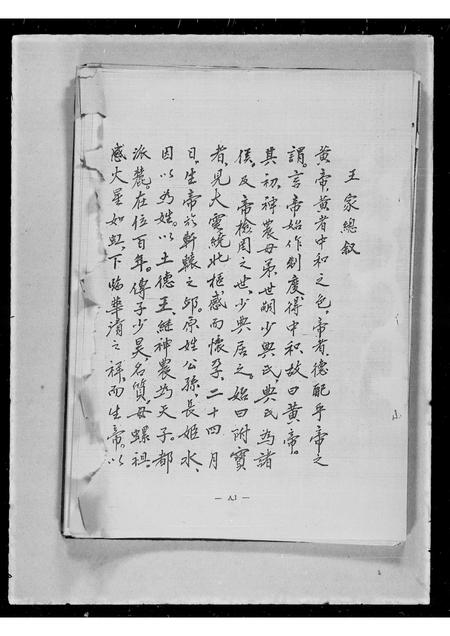 王家總敘
黃帝，黃者中和之色，帝者，德配乎帝之
謂。言帝始作制度得中和，故曰黃帝。
其初神農母弟，世嗣少典氏，典氏為諸
侯，反帝檢周之世，少典居之，始曰附寶
者，見大電繞北樞感而懷孕，二十四月
日，生帝於軒轅之邱。原姓公孫，長姬水，
因以為姓。以土德王，繼神農為天子。都
派麓。在位百年。傳子少昊，名質，母螺祖，
感火星如虹，下臨華渚之祥，而生帝。以